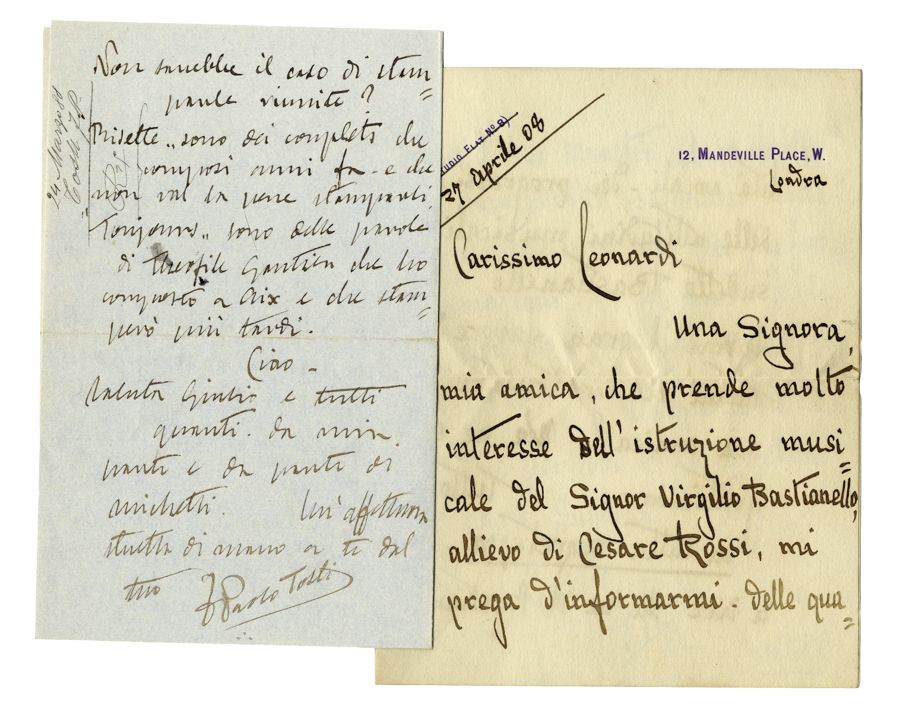 Non sarebbe il caso di stam=
parle riunite?
"Risette" sono dei couplets che
composi anni fa - e che
non val la pena stamparli
"Toujours" sono delle parole
di Theofile Gautier che ho
composto a Aix e che stam=
però più tardi.
Ciao -
Saluta Giulio e tutti
quanti. da mia
parte e da parte di
Michetti. Un' affettuosa
stretta di mano a te dal
tuo F Paolo Tosti
24 Marzo 88
Tosti
(Studio Flat No 8)
27 Aprile 08
12, Mandeville Place, W.
Londra
Carissimo Leonardi
Una Signora,
mia amica, che prende molto
interesse dell'istruzione musi=
cale del Signor Virgilio Bastianello,
allievo di Cesare Rossi, mi
prega d'informarmi. delle qua=